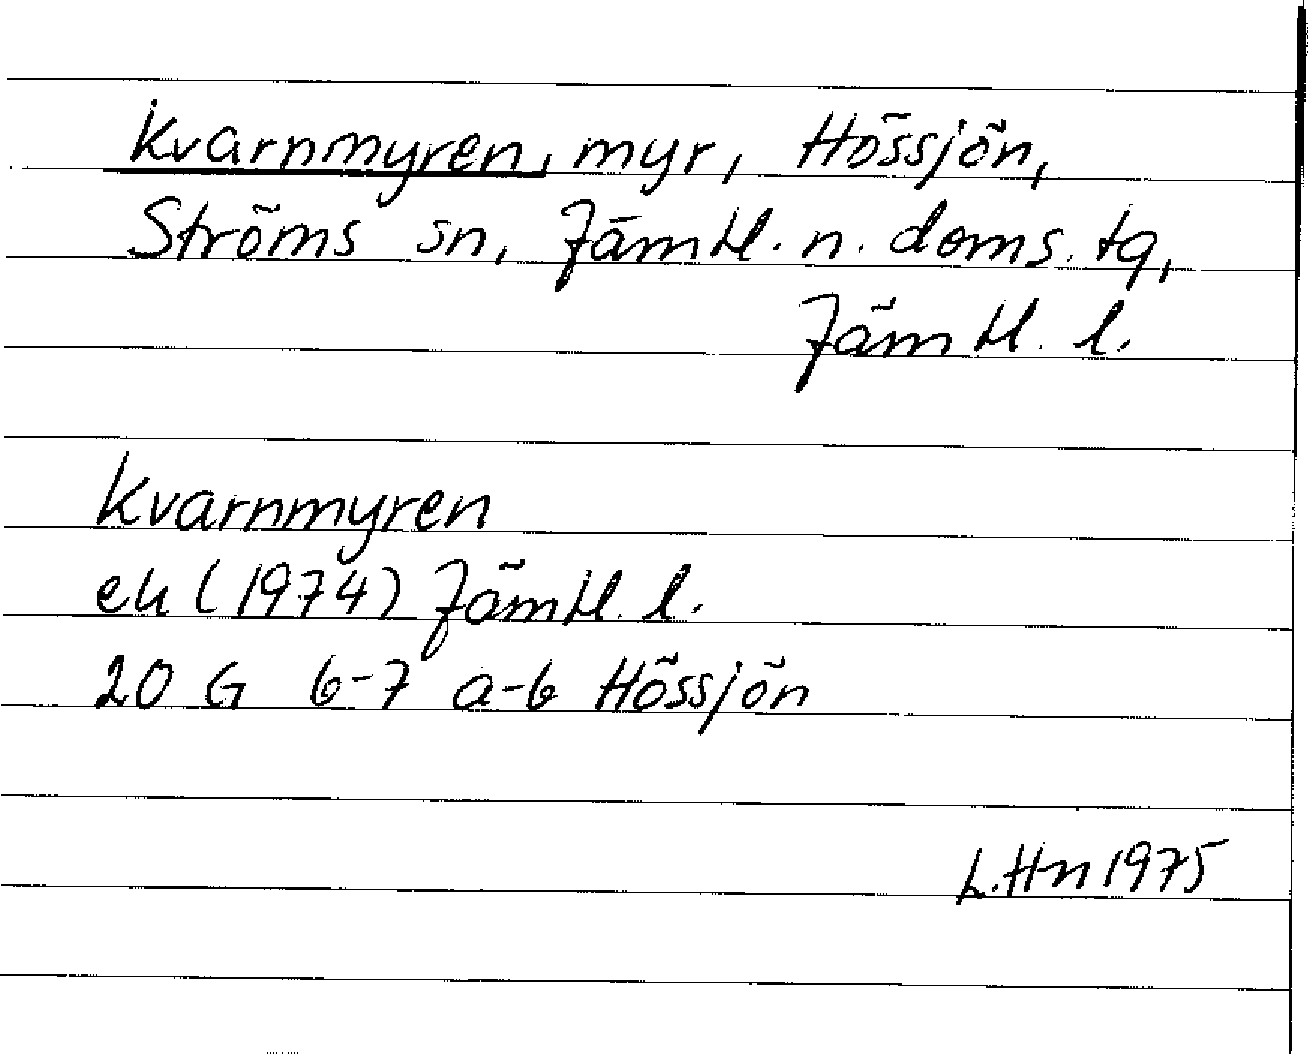 Kvarnmyren, myr, Hössjön,
Ströms sn, Jämtl. n. doms. tg,
Jämtl. l.
Kvarnmyren
ek (1974) Jämtl. l.
20 G 6-7 a-b Hössjön
L. Hn 1975